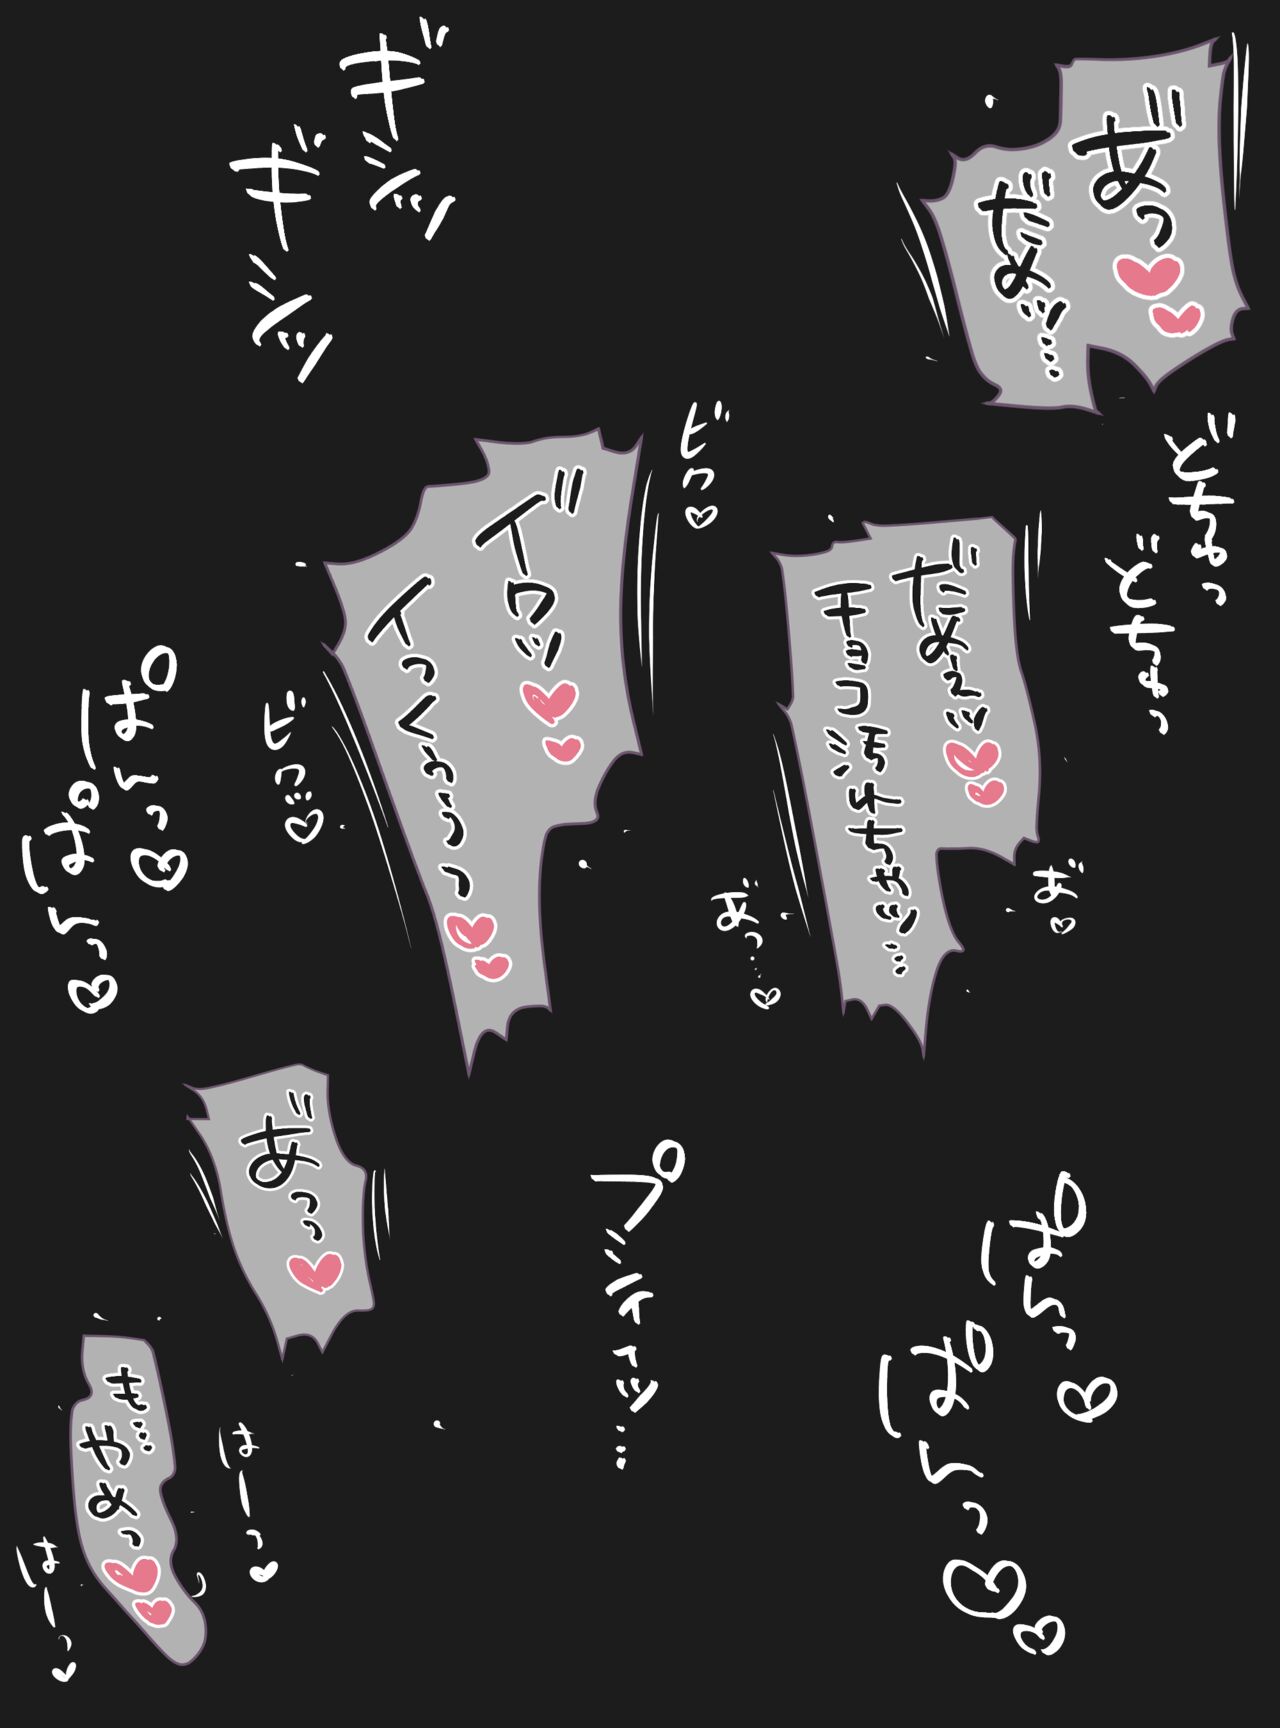 あ゙っ♥♥
だめッ…
ギシッ
ギシッ
どちゅっ
どちゅっ
だめぇッ♥♥
チョコ汚れちゃッ…
あ゙♡
あ゙っ…♡
ビク♡
イ゙クッ♥♥
イっくぅぅっ♥♥
ビク…♡
ぱんっ♡
ぱんっ♡
ぱんっ♡
ぱんっ♡♡
プシィッ…
あ゙っっ♥
も…やめっ♥♥
はーっ♥
はーっ♥